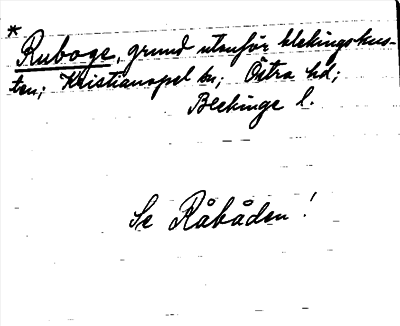 * Ruboge, grund utanför blekingskus-
ten; Kristianopel sn; Östra hd;
Blekinge l.
Se Råbåden!